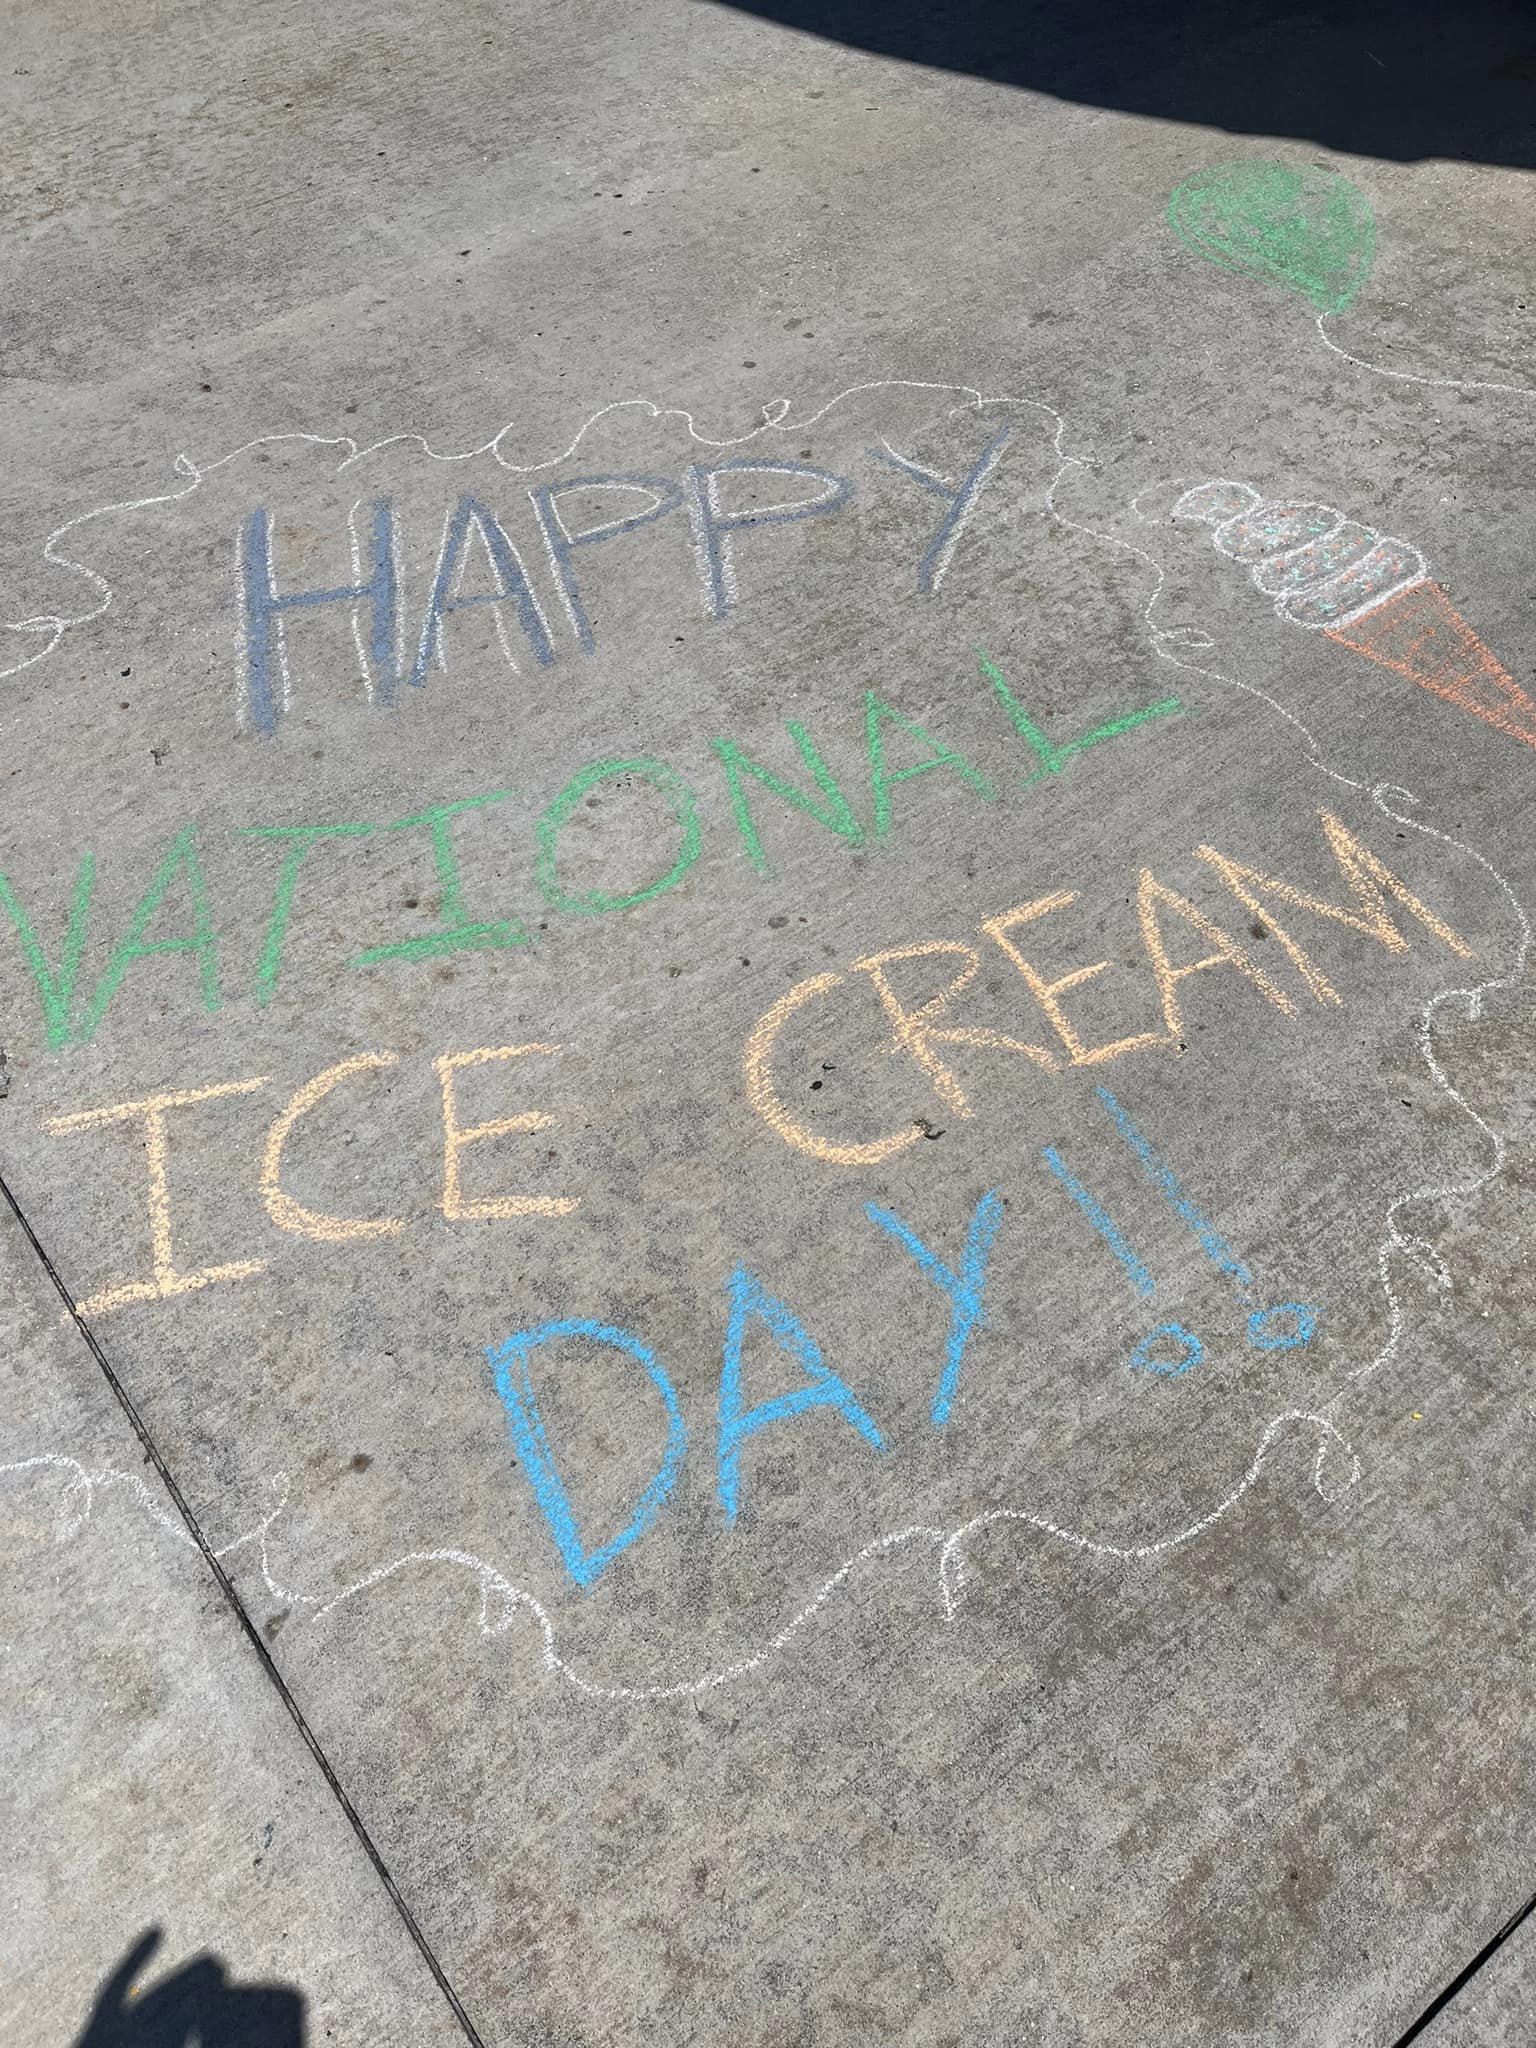 HAPPY
NATIONAL
ICE CREAM
DAY!!